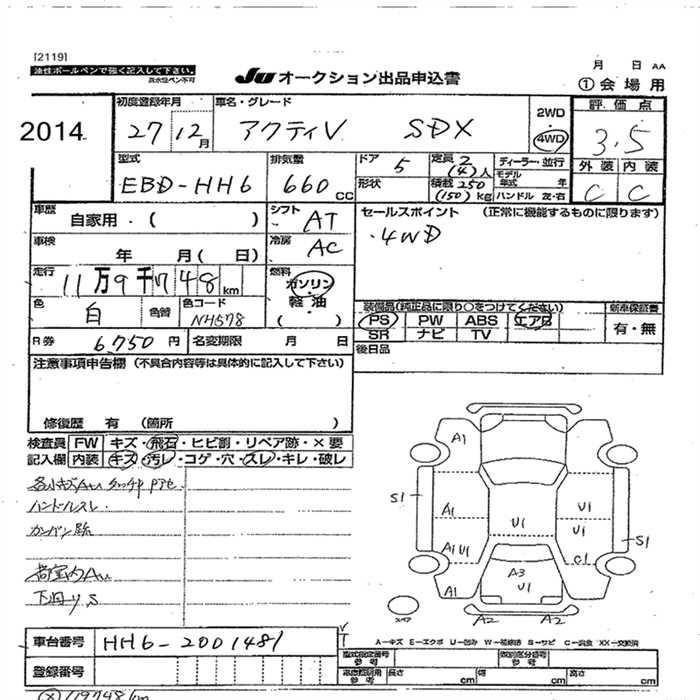 [2119]
油性ボールペンで強く記入して下さい。
水性ペン不可
JU オークション出品申込書
月 日 AA
①会場用
2014
初度登録年月
27 12月
車名・グレード
アクティV SDX
2WD
4WD
評価点
3.5
外装 内装
C C
型式
EBD-HH6
排気量
660 CC
ドア 5
形状
定員 2 (4)人
積載 250 (150)kg
ディーラー・並行
モデル年式 年
ハンドル 左・右
車歴
自家用・( )
シフト AT
セールスポイント (正常に機能するものに限ります)
・4WD
車検
年 月( 日)
冷房 AC
走行
11万9千748km
燃料
ガソリン
軽油
( )
色 白
色替
色コード
NH578
装備品(純正品に限り○をつけてください)
PS PW ABS エアB
SR ナビ TV
新車保証書
有・無
R券 6,750円
名変期限 月 日
後日品
注意事項申告欄 (不具合内容等は具体的に記入して下さい)
修復歴 有 (箇所 )
検査員記入欄
FW キズ・飛石・ヒビ割・リペア跡・×要
内装 キズ・汚レ・コゲ・穴・スレ・キレ・破レ
ハンドルスレ
カンバン跡
荷室内AU
下廻りS
A1
S1
A1
U1
U1
U1
S1
A1 U1
C1
A3
U1
A1
A2 A2
スペア
A=キズ E=エクボ U=凹み W=補修跡 S=サビ C=腐食 XX=交換済
車台番号 HH6-2001481
登録番号
型式指定番号
参考
類別区分番号
参考
車庫証明用
参考
長さ cm
幅 cm
高さ cm
119748km